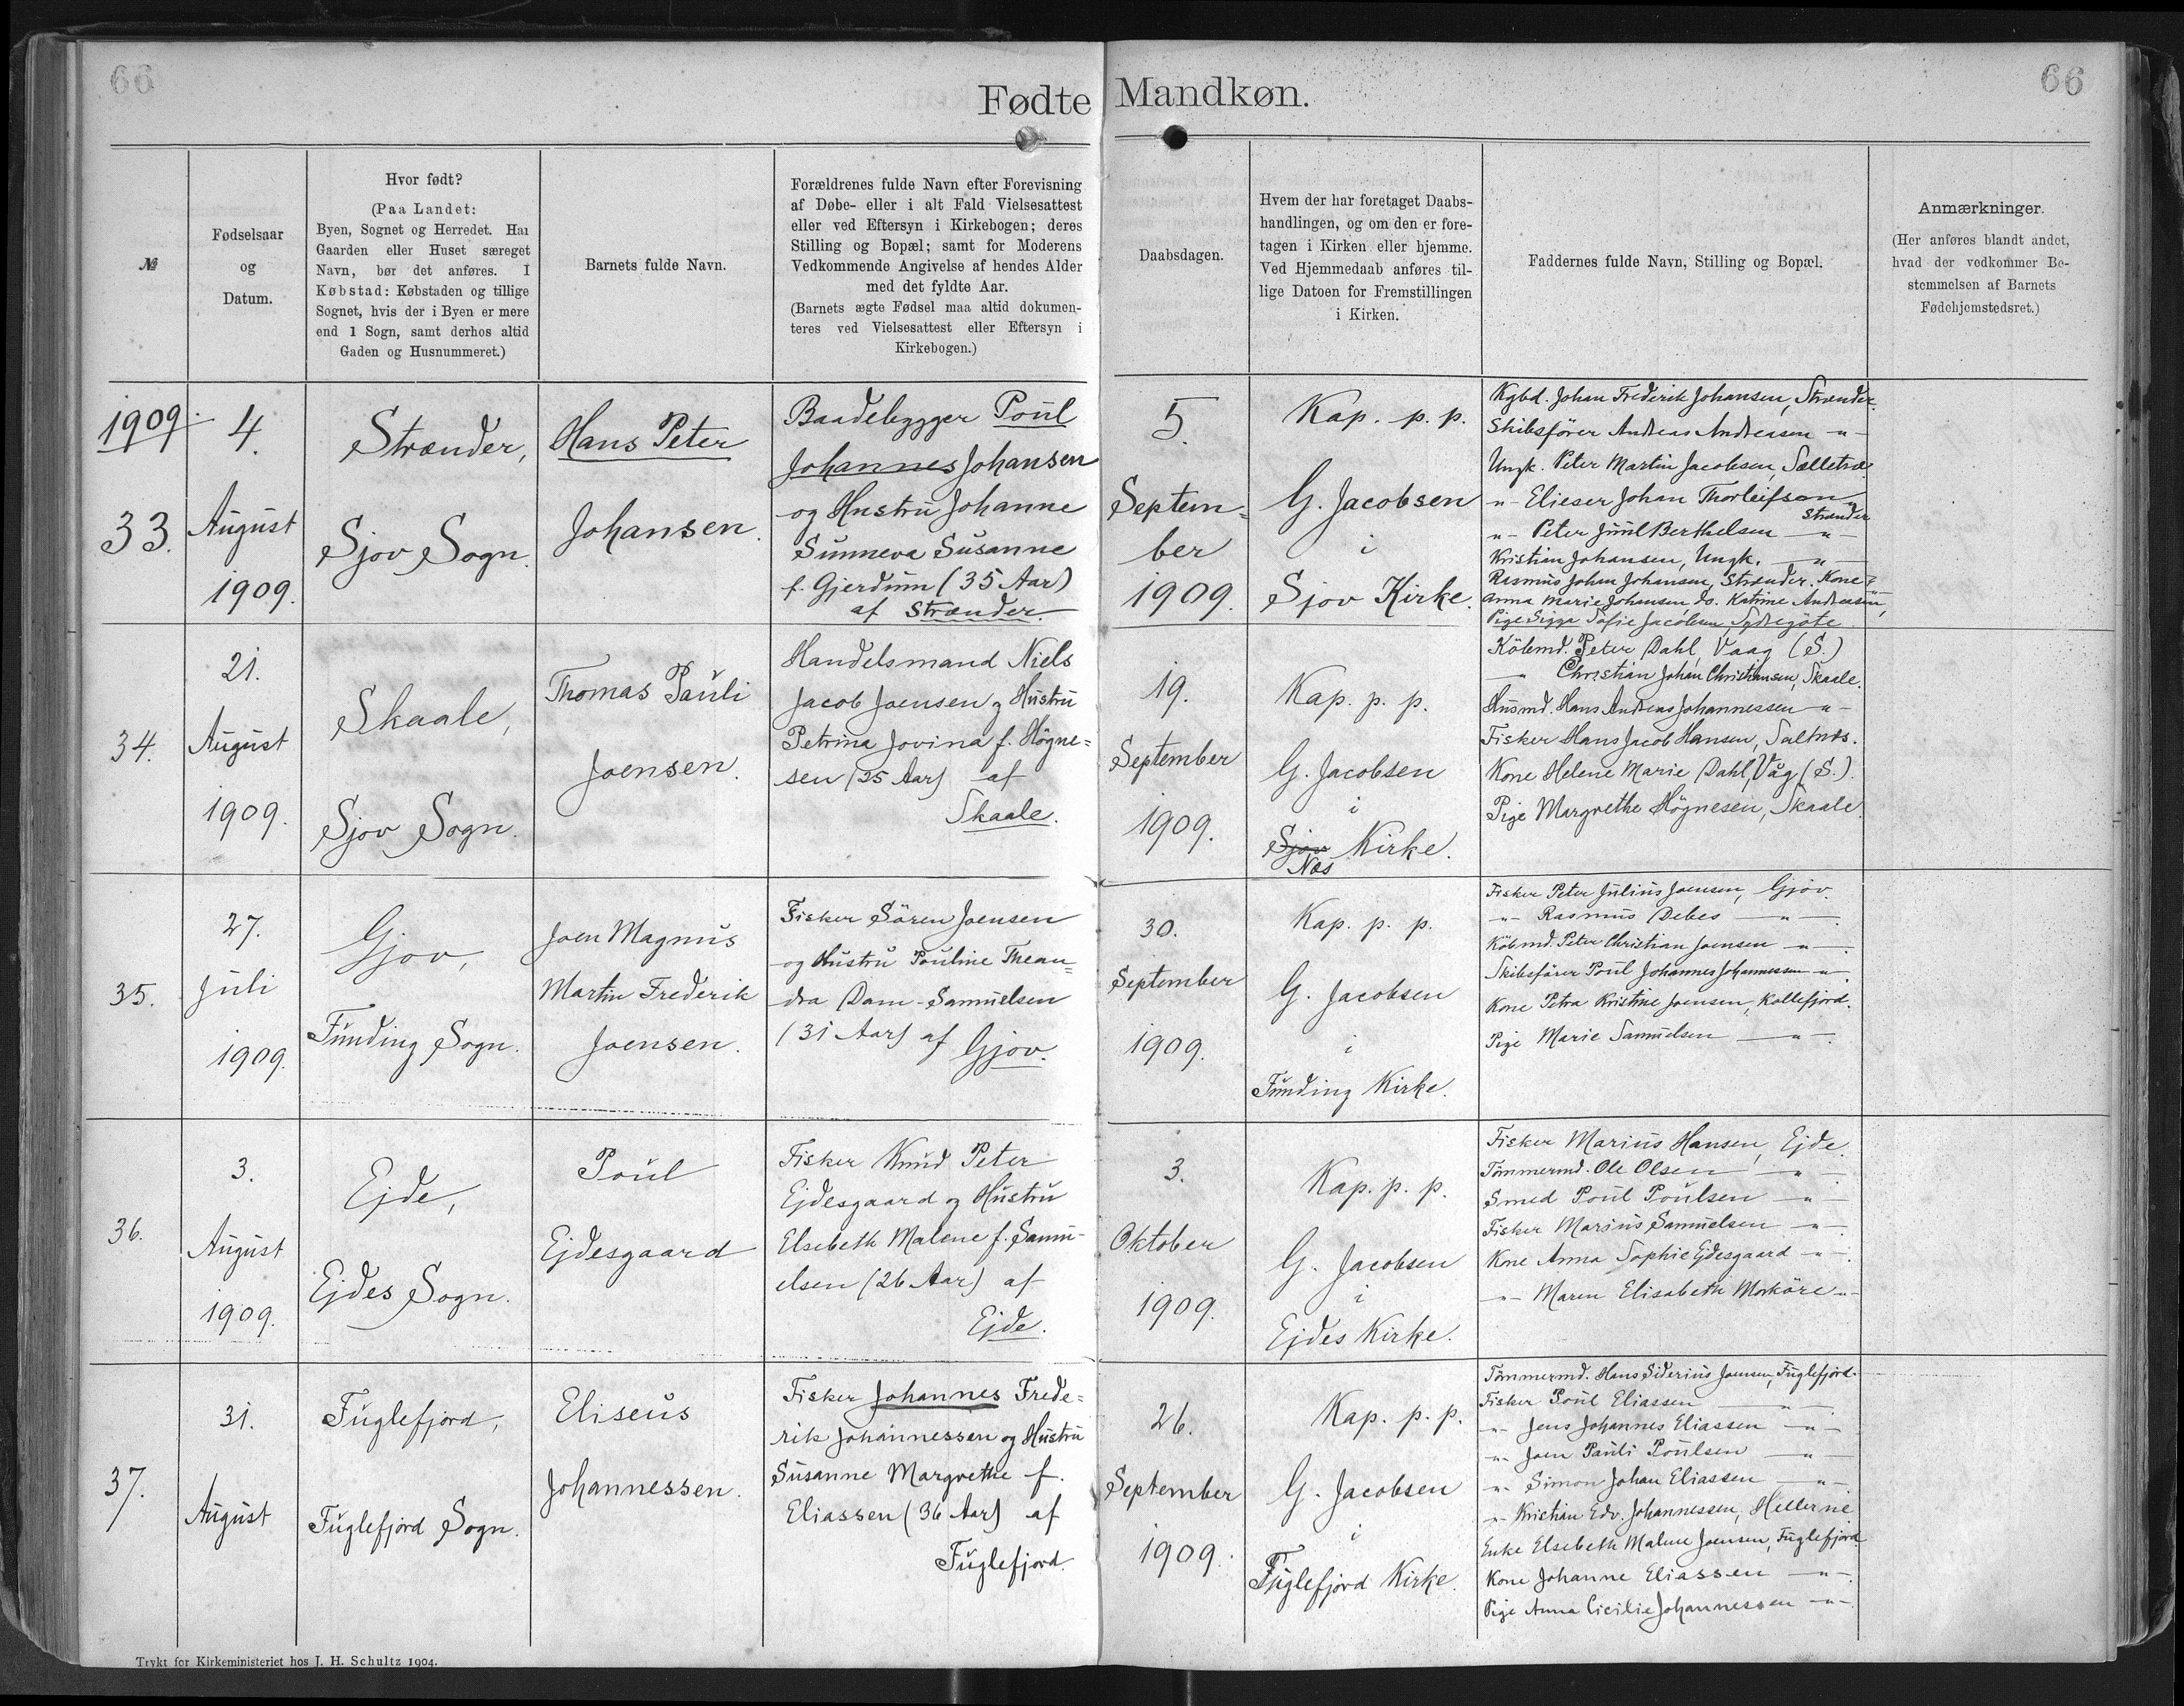 66
66
Fødte Mandkøn.
№
Fødselsaar
og
Datum.
Hvor født?
(Paa Landet:
Byen, Sognet og Herredet. Har
Gaarden eller Huset særeget
Navn, bør det anføres. I
Købstad: Købstaden og tillige
Sognet, hvis der i Byen er mere
end 1 Sogn, samt derhos altid
Gaden og Husnummeret.)
Barnets fulde Navn.
Forældrenes fulde Navn efter Forevisning
af Døbe- eller i alt Fald Vielsesattest
eller ved Eftersyn i Kirkebogen; deres
Stilling og Bopæl; samt for Moderens
Vedkommende Angivelse af hendes Alder
med det fyldte Aar.
(Barnets ægte Fødsel maa altid dokumen-
teres ved Vielsesattest eller Eftersyn i
Kirkebogen.)
Daabsdagen.
Hvem der har foretaget Daabs-
handlingen, og om den er fore-
tagen i Kirken eller hjemme.
Ved Hjemmedaab anføres til-
lige Datoen for Fremstillingen
i Kirken.
Faddernes fulde Navn, Stilling og Bopæl.
Anmærkninger.
(Her anføres blandt andet,
hvad der vedkommer Be-
stemmelsen af Barnets
Fødehjemstedsret.)
1909.
33.
4.
August
1909.
Strænder,
Sjov Sogn.
Hans Peter
Johansen.
Baadebygger Poul
Johannes Johansen
og Hustru Johanne
Sunneva Susanne
f. Gjerdum (35 Aar)
af Strænder.
5.
Septem=
ber
1909.
Kap. p. p.
G. Jacobsen
i
Sjov Kirke.
Kgbd. Johan Frederik Johansen, Strænder.
Skibsfører Andreas Andreasen -"-
Ungk. Peter Martin Jacobsen, Selletræ
-"- Elieser Johan Thorleifson
Strænder
-"- Peter Juul Berthelsen -"-
Kristian Johansen, Ungk. -"-
Rasmus Johan Johansen, Strænder. Kone
Anna Marie Johansen, do. Katrine Andreasen,
Pige Sigga Sofie Jacobsen, Sydregöte
34.
21.
August
1909.
Skaale,
Sjov Sogn.
Thomas Pauli
Joensen.
Handelsmand Niels
Jacob Joensen og Hustru
Petrina Jovina f. Högne=
sen (25 Aar) af
Skaale.
19.
September
1909.
Kap. p. p.
G. Jacobsen
i
Sjov Kirke.
Næs
Købmd. Peter Dahl, Vaag (S.)
-"- Christian Johan Christiansen, Skaale.
Husmd. Hans Andreas Johannessen -"-
Fisker Hans Jacob Hansen, Saltnæs.
Kone Helene Marie Dahl, Våg (S.).
Pige Margrethe Högnesen, Skaale
35.
27.
Juli
1909.
Gjov,
Funding Sogn.
Joen Magnus
Martin Frederik
Joensen.
Fisker Sören Joensen
og Hustru Pouline Thean=
dra Dam-Samuelsen
(31 Aar) af Gjov.
30.
September
1909.
Kap. p. p.
G. Jacobsen
i
Funding Kirke.
Fisker Peter Julius Joensen, Gjov.
-"- Rasmus Debes -"-
Købmd. Peter Christian Joensen -"-.
Skibsfører Poul Johannes Johannessen -"-
Kone Petra Kristine Joensen, Kollefjord.
Pige Marie Samuelsen -"-.
36.
3.
August
1909.
Ejde,
Ejdes Sogn.
Poul
Ejdesgaard
Fisker Knud Peter
Ejdesgaard og Hustru
Elsebeth Malene f. Samu-
elsen (26 Aar) af
Ejde.
3.
Oktober
1909.
Kap. p. p.
G. Jacobsen
i
Ejdes Kirke.
Fisker Marius Hansen, Ejde.
Tömmermd. Ole Olsen -"-
Smed Poul Poulsen -"-
Fisker Marius Samuelsen -"-
Kone Anna Sophie Ejdesgaard -"-.
-"- Maren Elisabeth Morköre -"-
37.
31.
August
Fuglefjord,
Fuglefjord Sogn.
Eliseus
Johannessen.
Fisker Johannes Frede=
rik Johannessen og Hustru
Susanne Margrethe f.
Eliassen (36 Aar) af
Fuglefjord.
26.
September
1909.
Kap. p. p.
G. Jacobsen
i
Fuglefjord Kirke.
Tömmermd. Hans Siderius Joensen, Fuglefjord.
Fisker Poul Eliassen -"-
-"- Jens Johannes Eliassen -"-
-"- Joen Pauli Poulsen -"-
-"- Simon Johan Eliassen -"-
-"- Kristian Edv. Johannessen, Hellerne
Enke Elsebeth Malene Joensen, Fuglefjord
Kone Johanne Eliassen -"-.
Pige Anna Cicilie Johannessen -"-.
Trykt for Kirkeministeriet hos J. H. Schultz 1904.